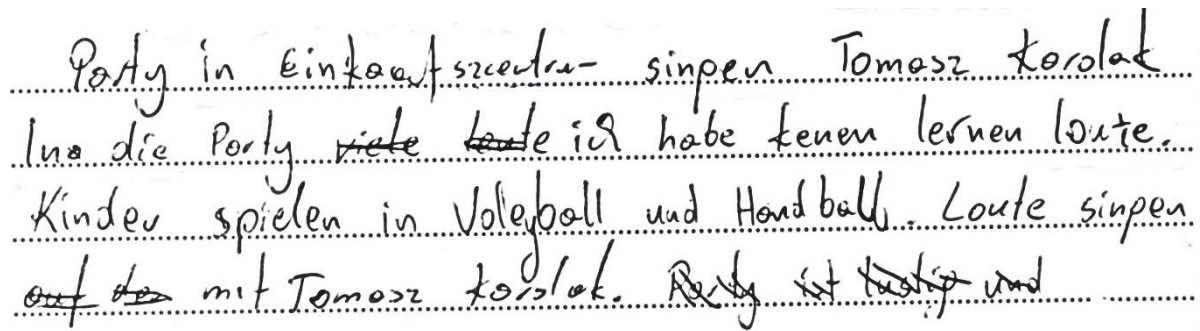 Party in Einkaufszentrum singen Tomasz Karolak
Ina die Party viele leute ich habe kenen lernen loute.
Kinder spielen in Voleyball und Handball. Loute singen
auf das mit Tomasz Karolak. Party ist lustig und